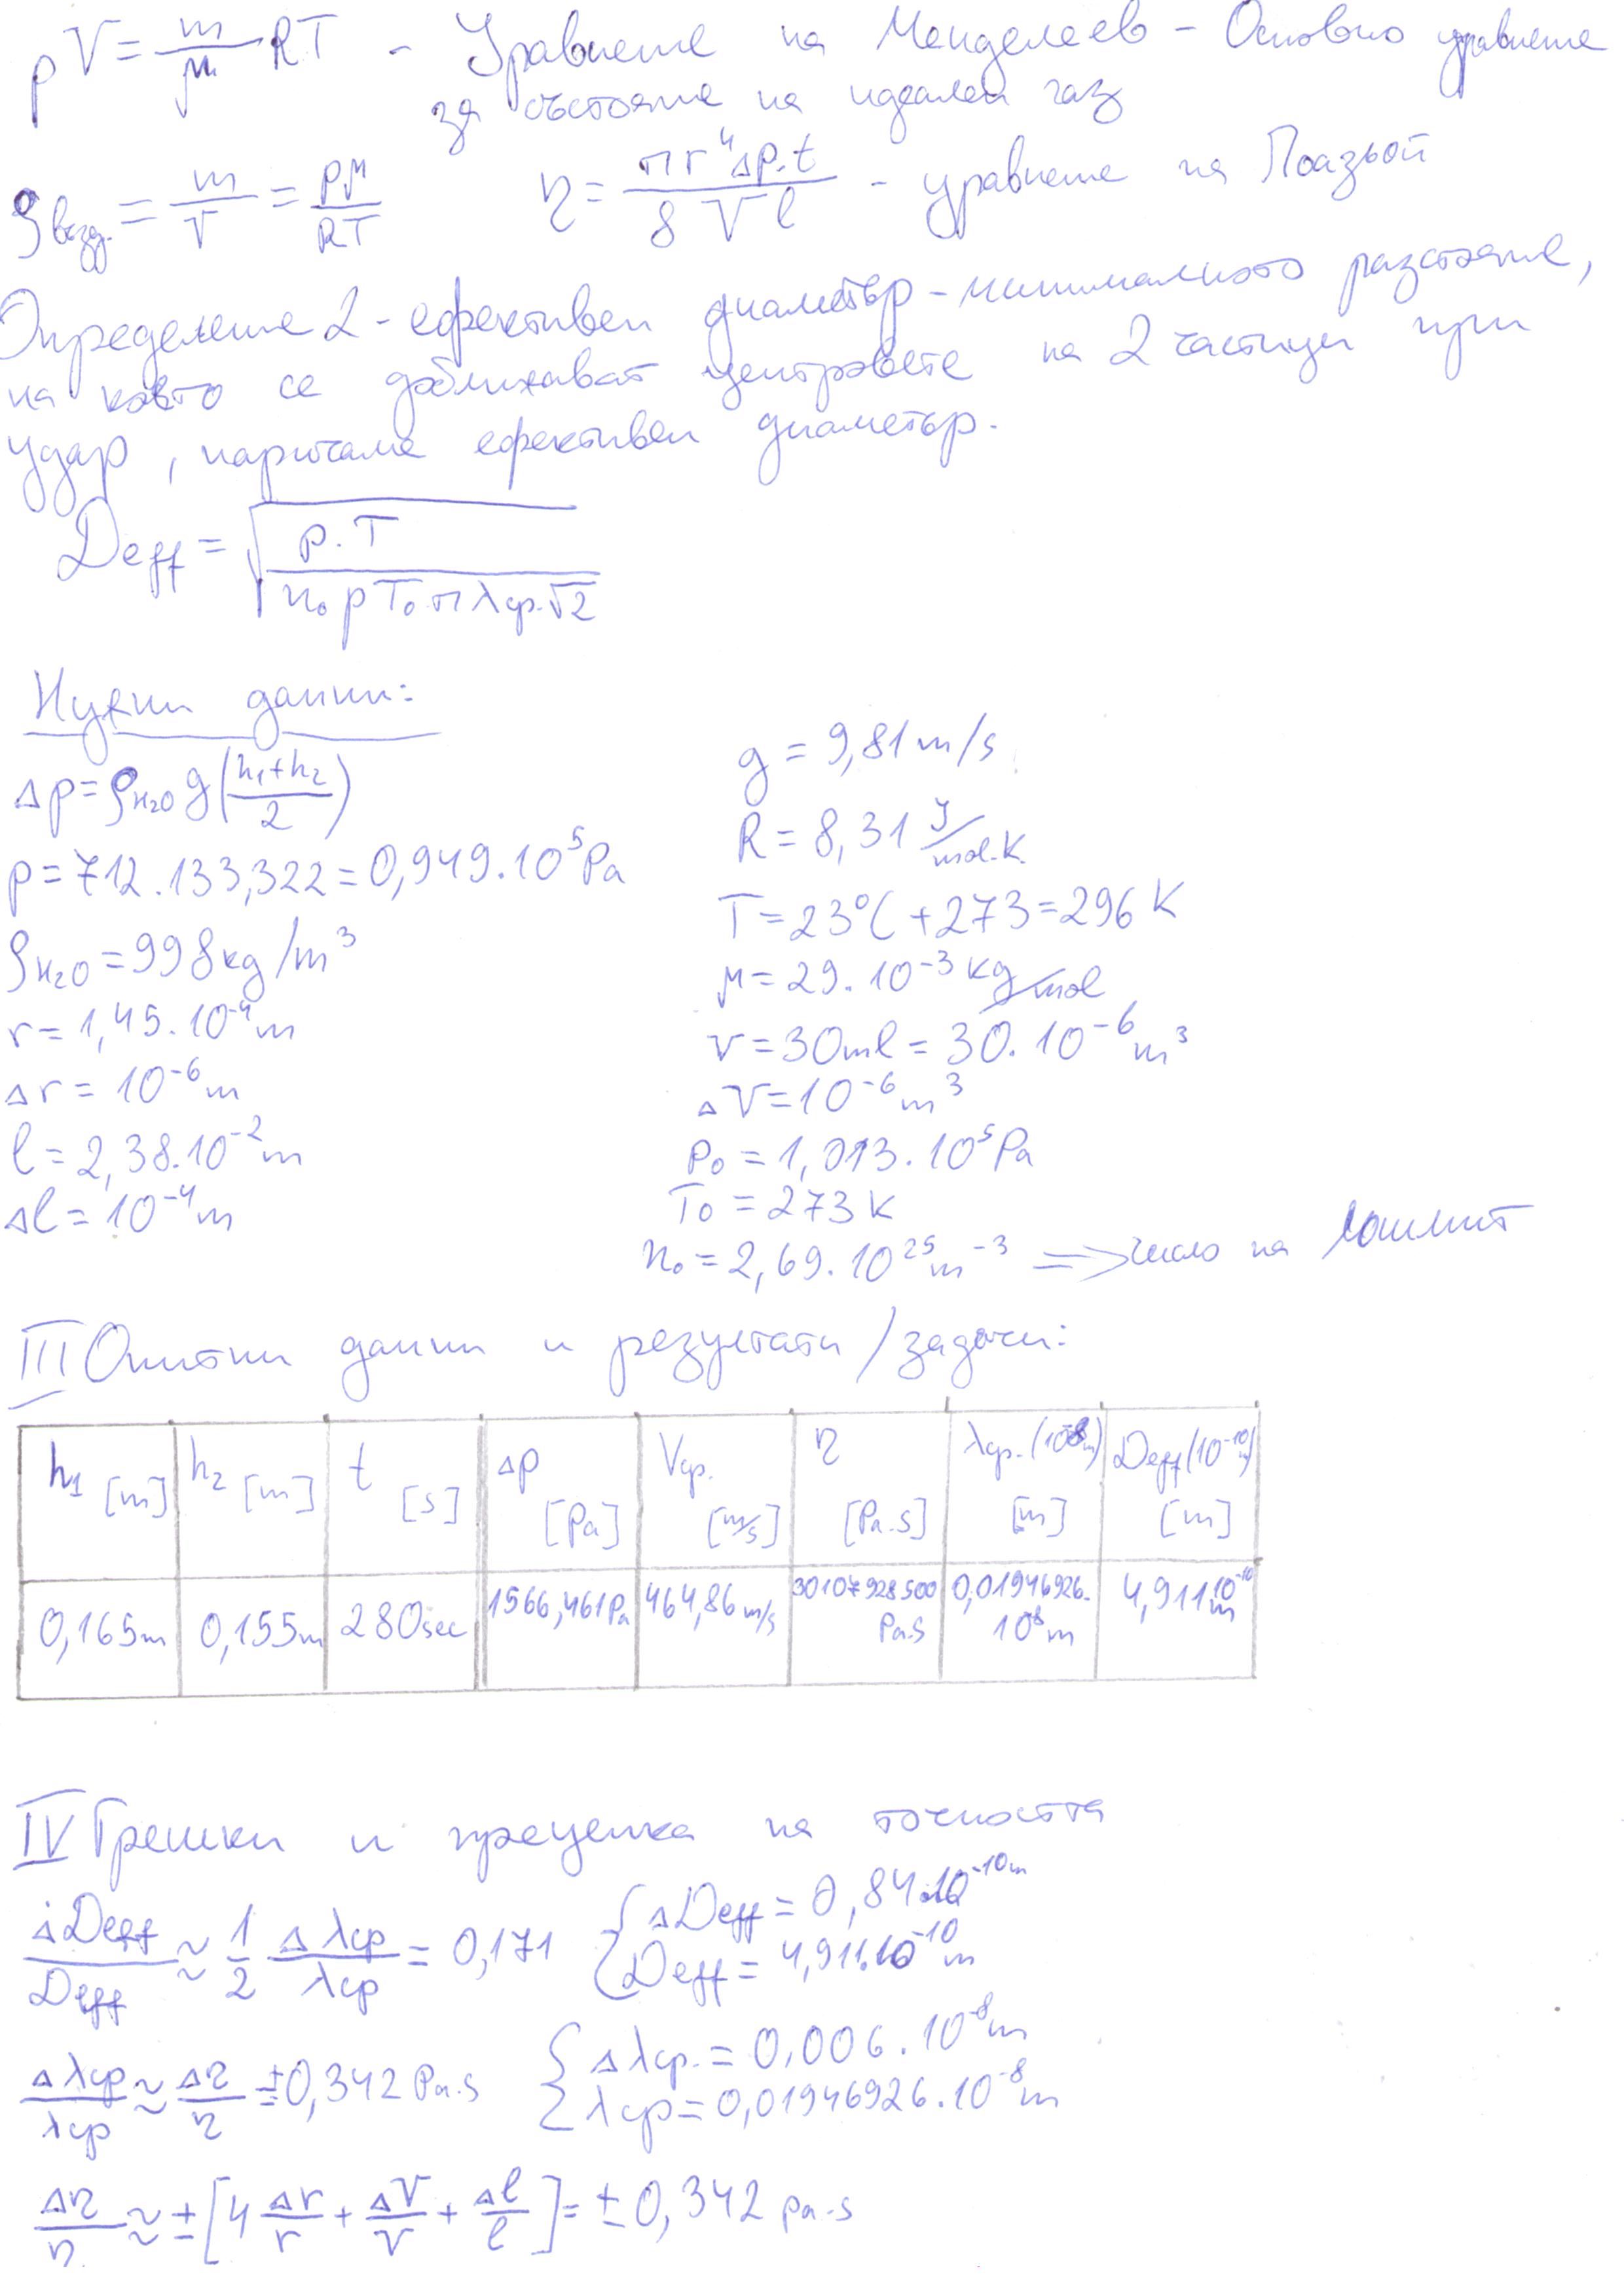 pV = m/μ RT - Уравнение на Менделеев - Основно уравнение
за състояние на идеален газ
ρвъзд. = m/V = pμ/RT η = πr⁴Δp.t / 8Vl - уравнение на Поазьой
Определение 2 - ефективен диаметър - минималното разстояние,
на което се доближават центровете на 2 частици при
удар, наричаме ефективен диаметър.
Deff = √(p.T / n₀pT₀.πλср.√2)
Нужни данни:
Δp = ρH₂O g((h₁+h₂)/2)
p = 712.133,322 = 0,949.10⁵Pa
ρH₂O = 998kg/m³
r = 1,45.10⁻⁴m
Δr = 10⁻⁶m
l = 2,38.10⁻²m
Δl = 10⁻⁴m
g = 9,81m/s
R = 8,31 J/mol.K.
T = 23°C + 273 = 296 K
μ = 29.10⁻³ kg/mol
V = 30ml = 30.10⁻⁶m³
ΔV = 10⁻⁶m³
p₀ = 1,013.10⁵Pa
T₀ = 273 K
n₀ = 2,69.10²⁵m⁻³ => число на Лошмит
III Опитни данни и резултати/задачи:
h₁ [m] h₂ [m] t [s] Δp [Pa] Vср. [m/s] η [Pa.s] λср.(10⁻⁸m) [m] Deff(10⁻¹⁰m) [m]
0,165m 0,155m 280sec 1566,461Pa 464,86m/s 30107928500 Pa.s 0,01946926.10⁻⁸m 4,911.10⁻¹⁰m
IV Грешки и преценка на точността
ΔDeff/Deff ≈ 1/2 Δλср/λср = 0,171 { ΔDeff = 0,84.10⁻¹⁰m
Deff = 4,911.10⁻¹⁰m
Δλср/λср ≈ Δη/η = ±0,342 Pa.s { Δλср. = 0,006.10⁻⁸m
λср = 0,01946926.10⁻⁸m
Δη/η ≈ ±[4 Δr/r + ΔV/V + Δl/l] = ±0,342 pa.s